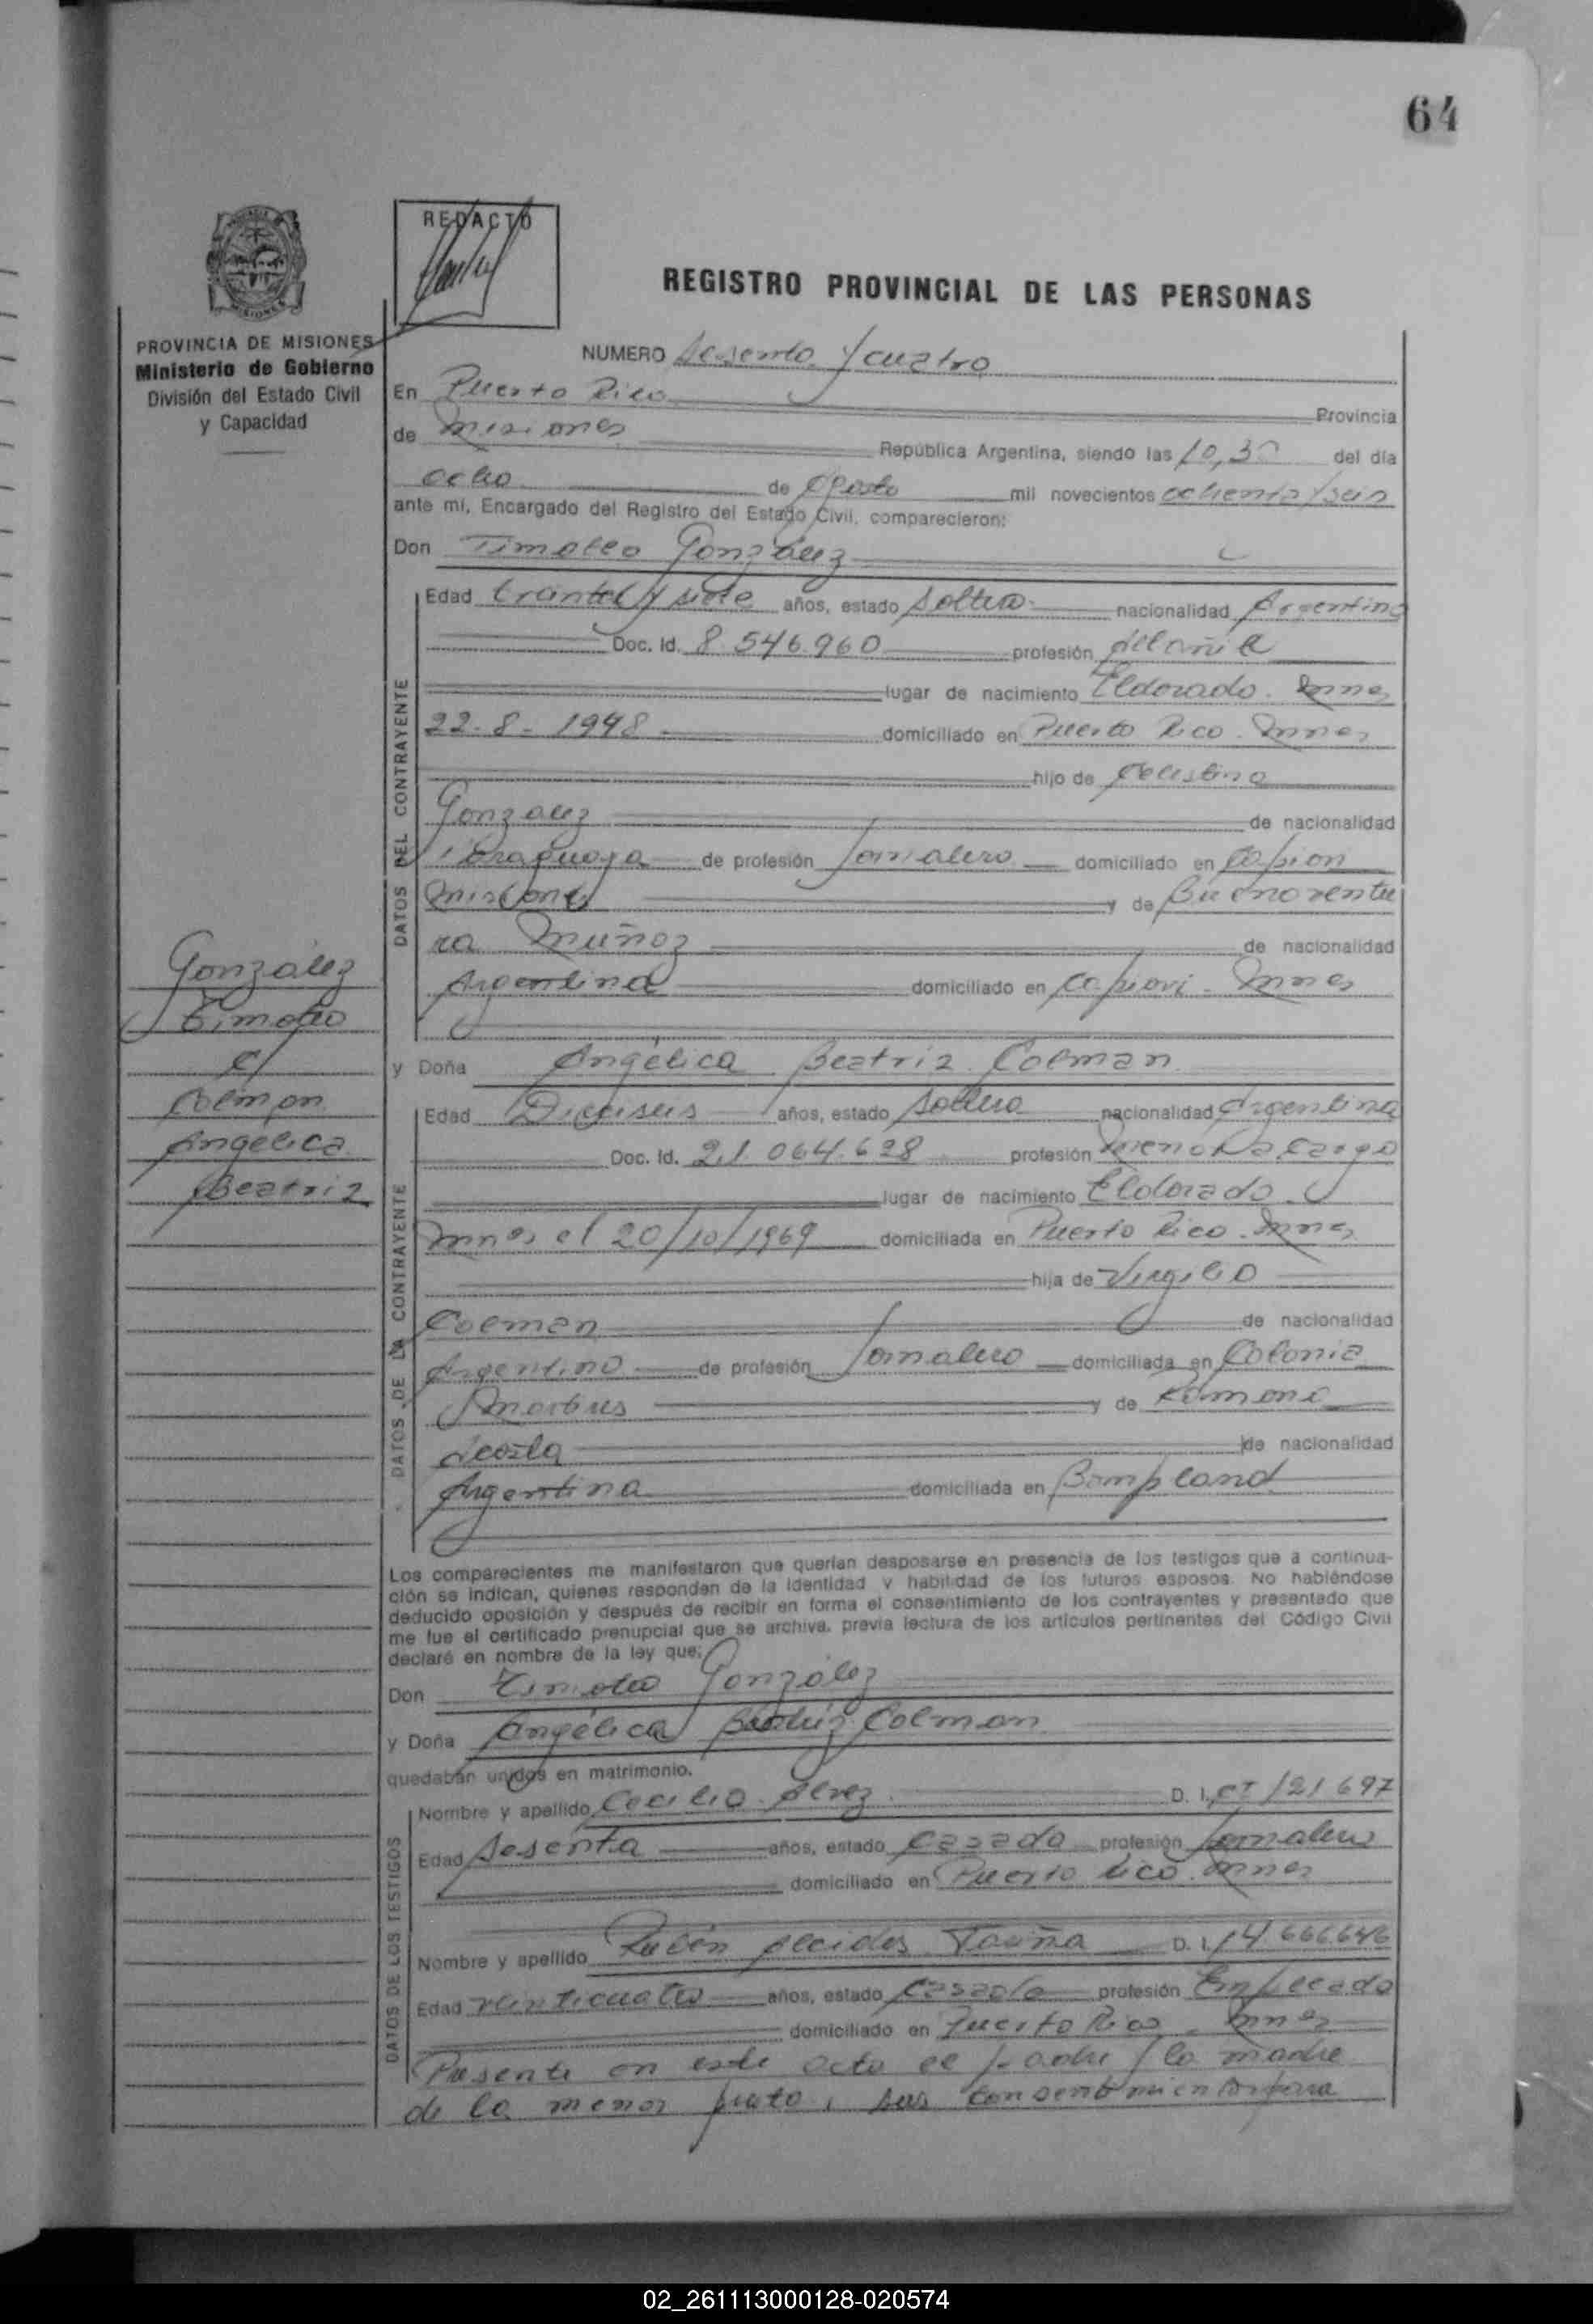 64
REDACTO
REGISTRO PROVINCIAL DE LAS PERSONAS
PROVINCIA DE MISIONES
Ministerio de Gobierno
División del Estado Civil
y Capacidad
NUMERO Sesenta y cuatro
En Puerto Rico Provincia
de Misiones República Argentina, siendo las 10,30 del día
ocho de Agosto mil novecientos ochenta y seis
ante mí, Encargado del Registro del Estado Civil, comparecieron:
Don Timoteo González
Edad treinta y siete años, estado soltero nacionalidad Argentino
Doc. Id. 8.546.960 profesión
lugar de nacimiento Eldorado. Mnes
22-8-1948 domiciliado en Puerto Rico. Mnes
hijo de Celestino
Gonzalez de nacionalidad
Paraguaya de profesión Jornalero domiciliado en
Misiones y de Buenaventu
ra Muñoz de nacionalidad
Argentina domiciliado en Capiovi - Mnes
González
Timoteo
c/
Colman
Angélica
Beatriz
y Doña Angélica Beatriz Colman
Edad Dieciseis años, estado soltera nacionalidad Argentina
Doc. Id. 21.064.628 profesión
lugar de nacimiento Eldorado.
Mnes el 20/10/1969 domiciliada en Puerto Rico. Mnes
hija de Virgilio
Colman de nacionalidad
Argentino de profesión Jornalero domiciliada en Colonia
Martires y de Ramona
Acosta de nacionalidad
Argentina domiciliada en Bompland
DATOS DEL CONTRAYENTE
DATOS DE LA CONTRAYENTE
Los comparecientes me manifestaron que querían desposarse en presencia de los testigos que a continua-
ción se indican, quienes responden de la identidad y habilidad de los futuros esposos. No habiéndose
deducido oposición y después de recibir en forma el consentimiento de los contrayentes y presentado que
me fue el certificado prenupcial que se archiva, previa lectura de los artículos pertinentes del Código Civil
declaré en nombre de la ley que:
Don Timoteo González
y Doña Angélica Beatriz Colman
quedaban unidos en matrimonio.
Nombre y apellido Cecilio Perez D. I. CI 121697
Edad Sesenta años, estado Casado profesión Jornalero
domiciliado en Puerto Rico. Mnes
Nombre y apellido Rubén Alcides D. I. 14666646
Edad veinticuatro años, estado Casado profesión Empleado
domiciliado en Puerto Rico. Mnes
DATOS DE LOS TESTIGOS
Presente en este acto el padre y la madre
de la menor sus consentimientos para
02_261113000128-020574